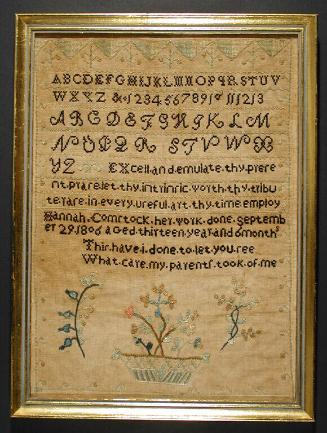 ABCDEFGHIJKLMNOPQRSTUV
WXYZ & 1234567891011213
ABCDEFGHIJKLM
NOPQR STVWX
YZ Excell and emulate thy prese
nt praise let thy intrinsic worth thy tribu
te raise in every useful art thy time employ
Hannah Comstock her work done Septemb
er 29 1806 aged thirteen year and 6 month
This have i done to let you see
What care my parents took of me